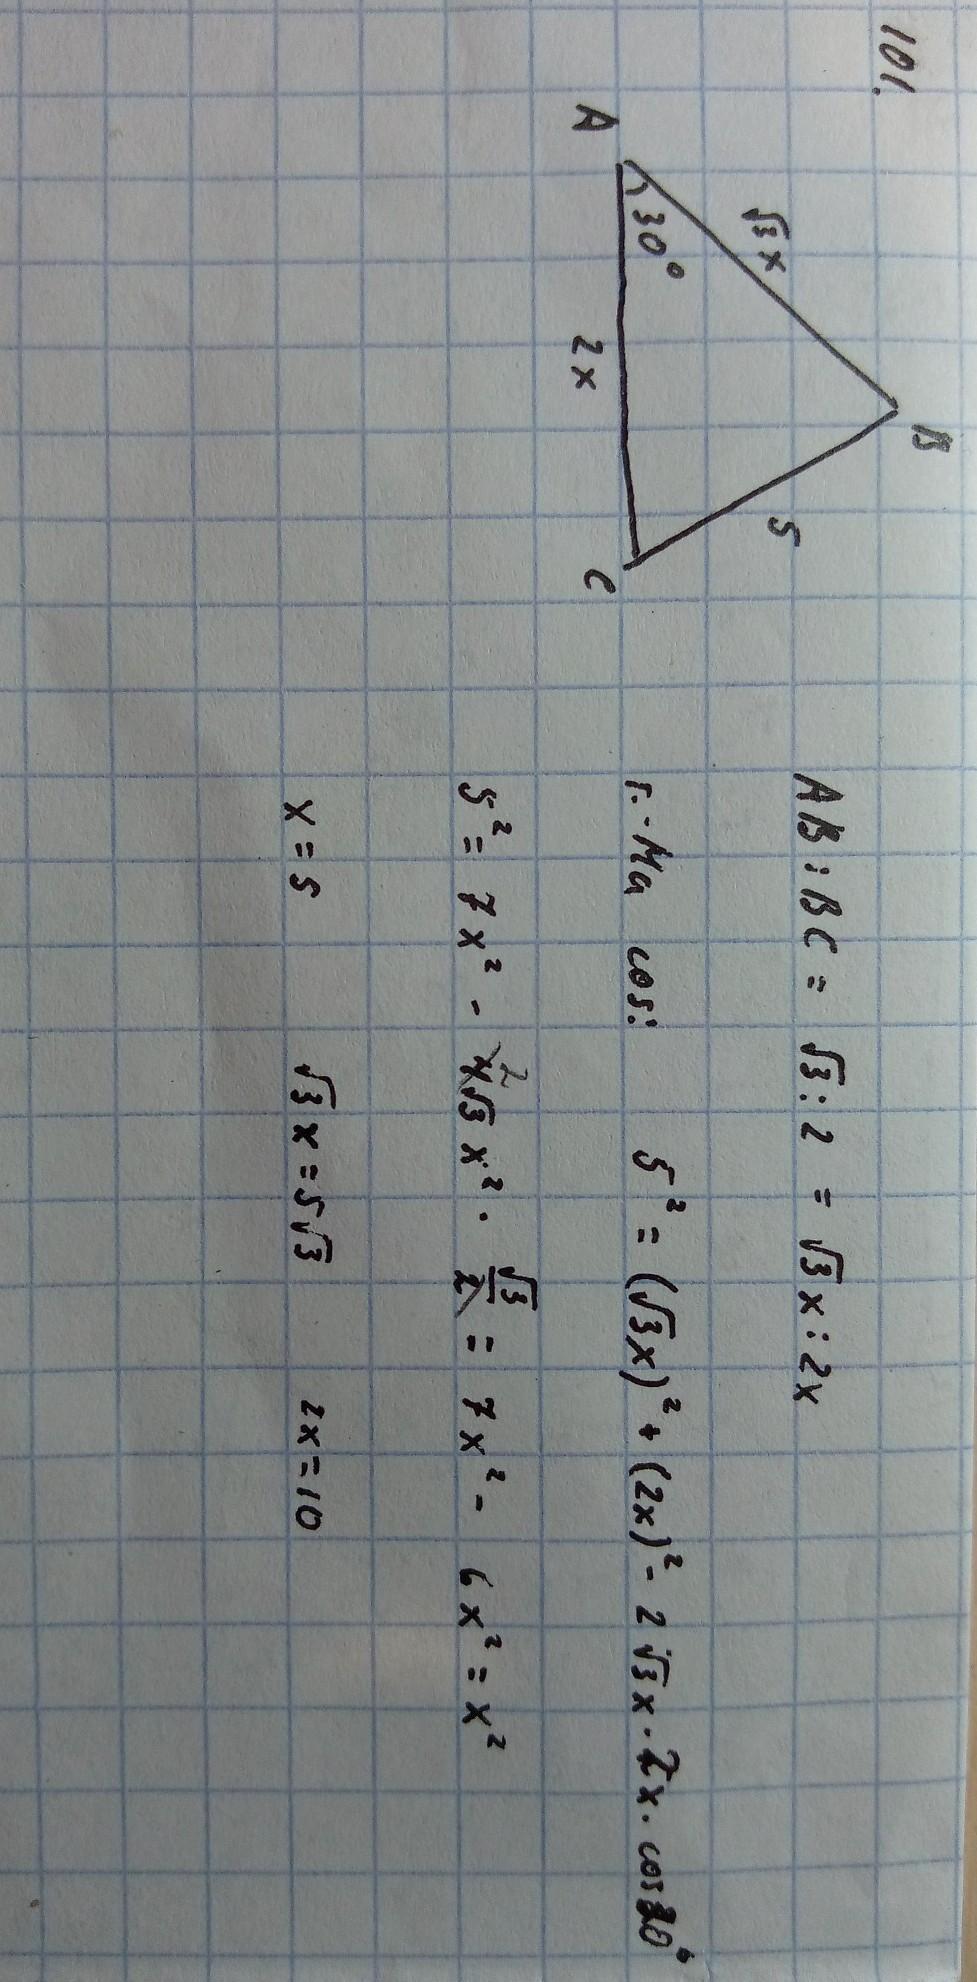 101.
B
√3 x
5
30°
A
2x
C
AB:BC = √3:2 = √3x:2x
т-ма cos: 5² = (√3x)² + (2x)² - 2√3x · 2x · cos30°
5² = 7x² - 4√3x² · √3/2 = 7x² - 6x² = x²
2
x = 5 √3x = 5√3 2x = 10